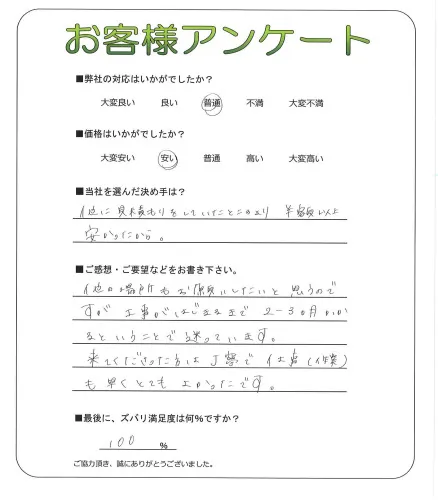 お客様アンケート
■弊社の対応はいかがでしたか？
大変良い 良い 普通 不満 大変不満
■価格はいかがでしたか？
大変安い 安い 普通 高い 大変高い
■当社を選んだ決め手は？
他に見積もりをしていたとこのより 半額以上
安かったから。
■ご感想・ご要望などをお書き下さい。
他の場所もお願いしたいと思うので
すが 工事がはじまるまで 2-3ヶ月かか
るということで迷っています。
来てくださった方は丁寧で仕事(作業)
も早くとてもよかったです。
■最後に、ズバリ満足度は何%ですか？
100 %
ご協力頂き、誠にありがとうございました。